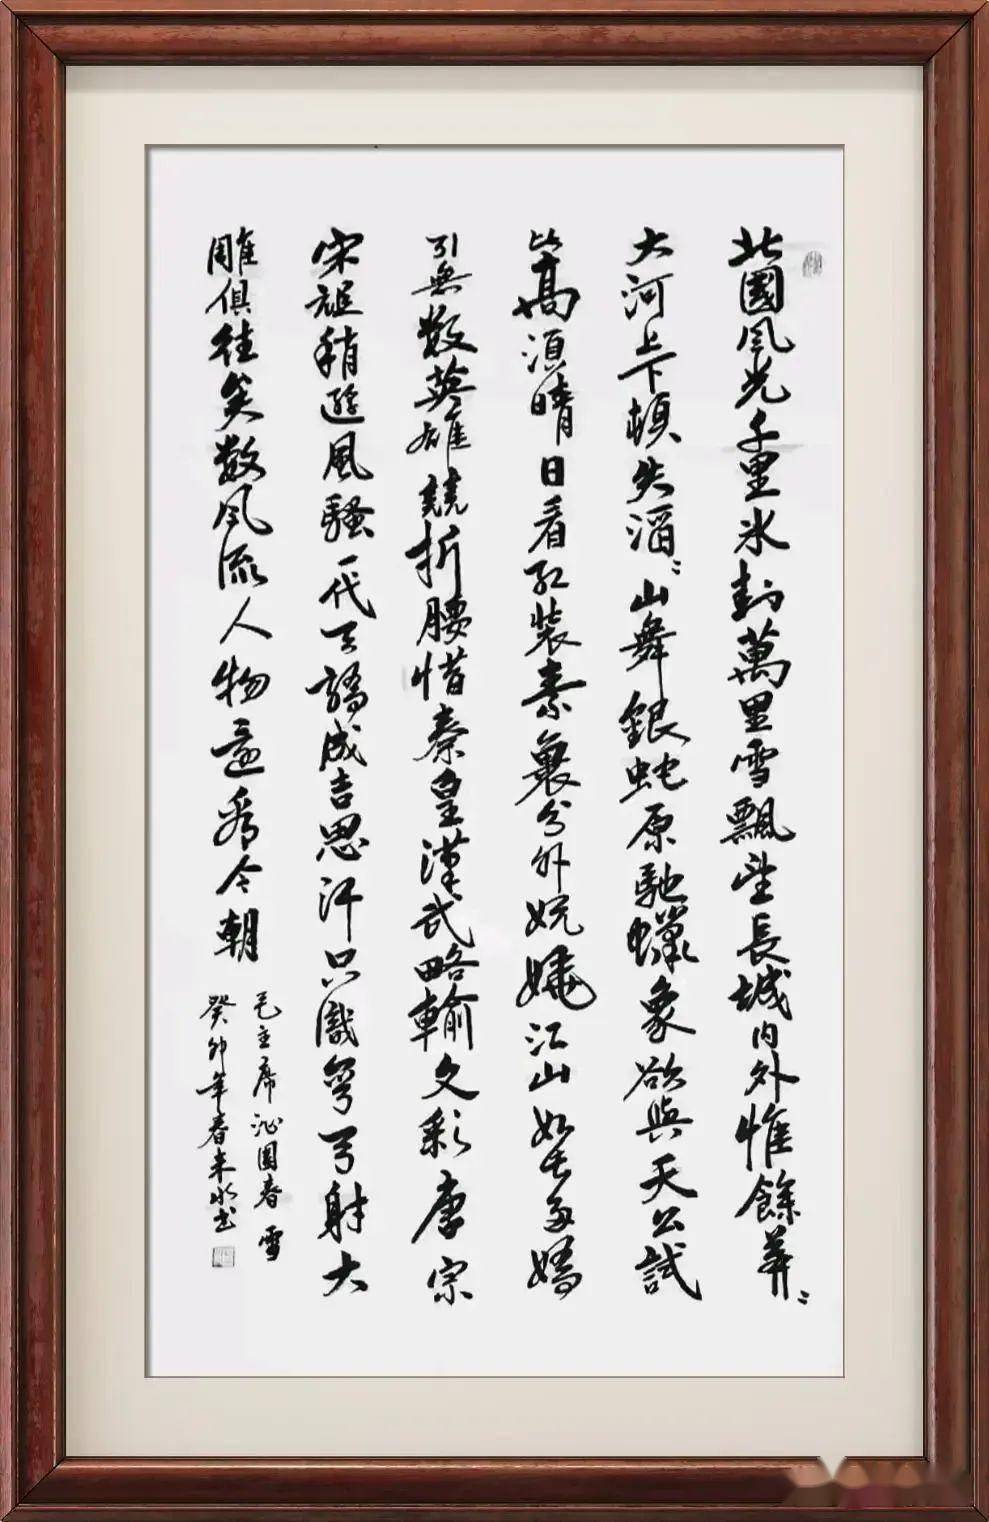 北國風光千里冰封萬里雪飄望長城内外惟餘莽〻
大河上下頓失滔〻山舞銀蛇原馳蠟象欲與天公試
比高須晴日看紅裝素裹分外妖嬈江山如此多嬌
引無數英雄競折腰惜秦皇漢武略輸文彩唐宗
宋祖稍遜風騷一代天驕成吉思汗只識彎弓射大
雕俱往矣數風流人物還看今朝
毛主席沁園春 雪
癸卯年春 书